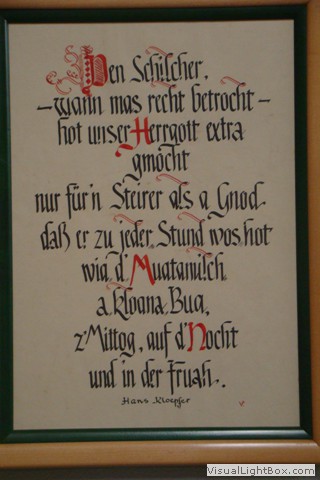 Den Schilcher,
– wann mas recht betrocht –
hot unser Herrgott extra
gmocht
nur für'n Steirer als a Gnod.
daß er zu jeder Stund wos hot
wia d' Muatamilch
a kloana Bua,
z' Mittog, auf d' Nocht
und in der Fruah.
Hans Kloepfer
VisualLightBox.com